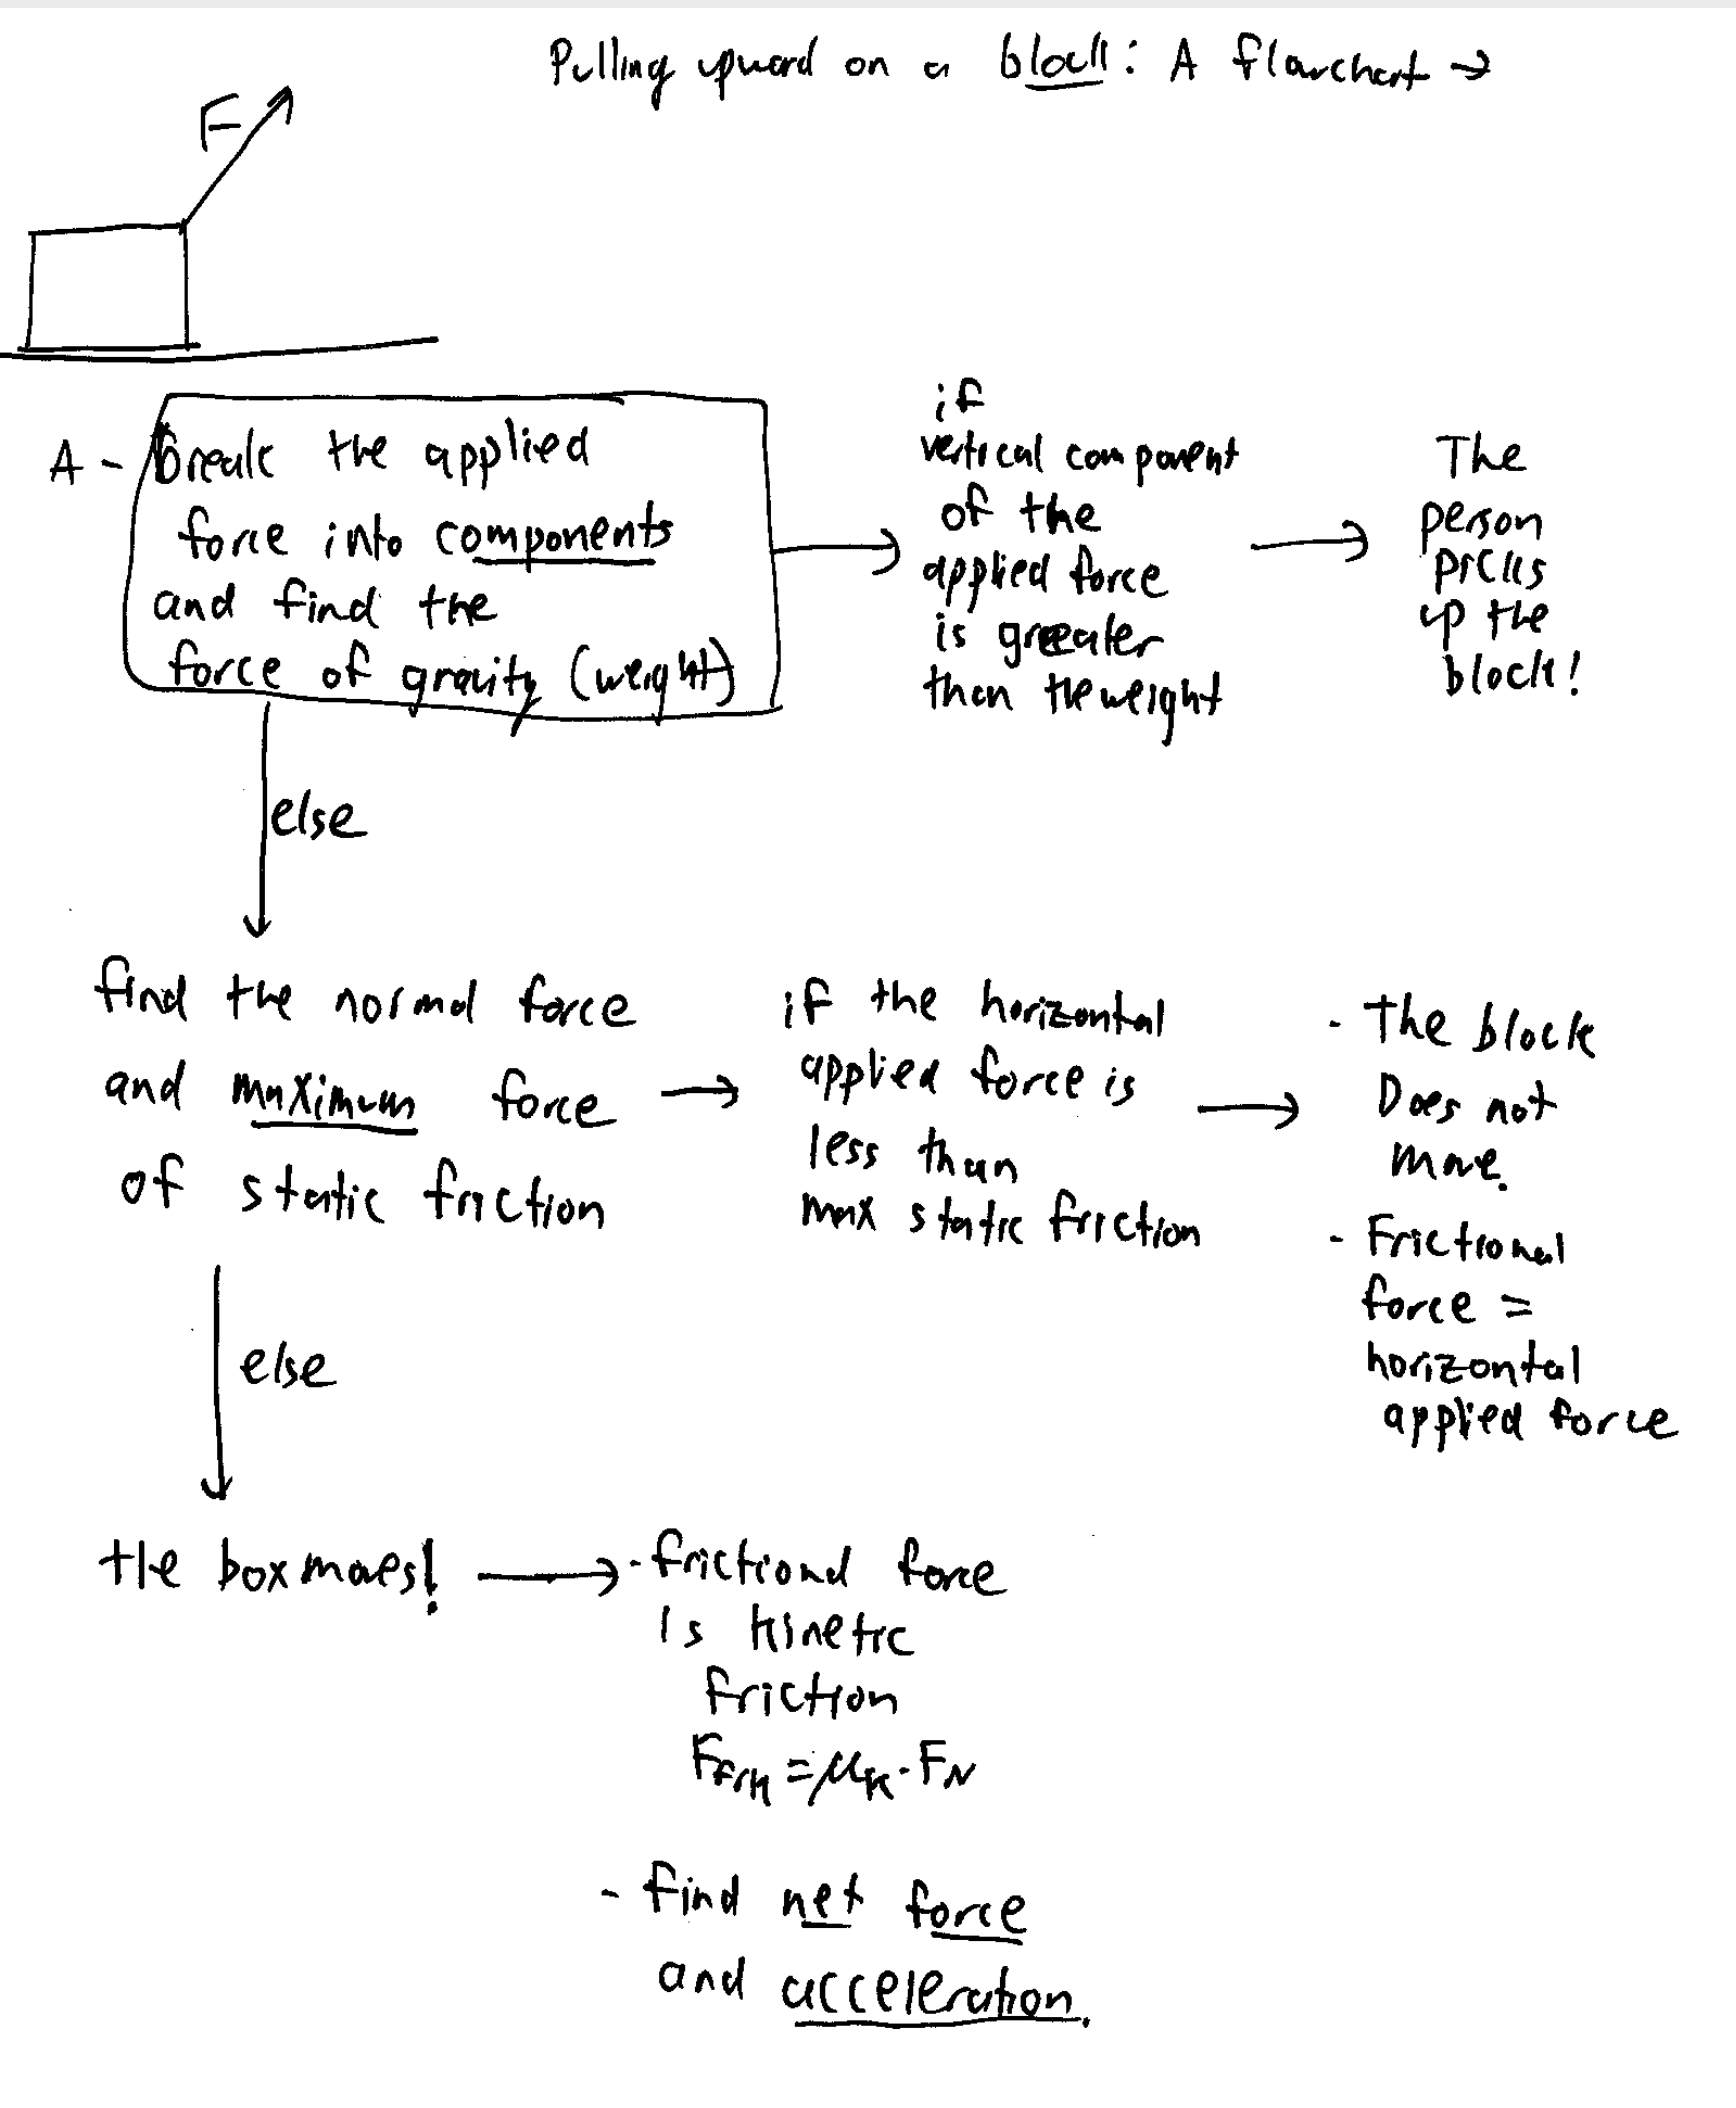 Pulling upward on a block: A flowchart →
F
A - Break the applied
force into components
and find the
force of gravity (weight)
if
vertical component
of the
applied force
is greater
than the weight
The
person
picks
up the
block!
else
find the normal force
and maximum force
of static friction
if the horizontal
applied force is
less than
max static friction
- The block
Does not
move.
- Frictional
force =
horizontal
applied force
else
the box moves!
- frictional force
is kinetic
friction
= μk · FN
- find net force
and acceleration.